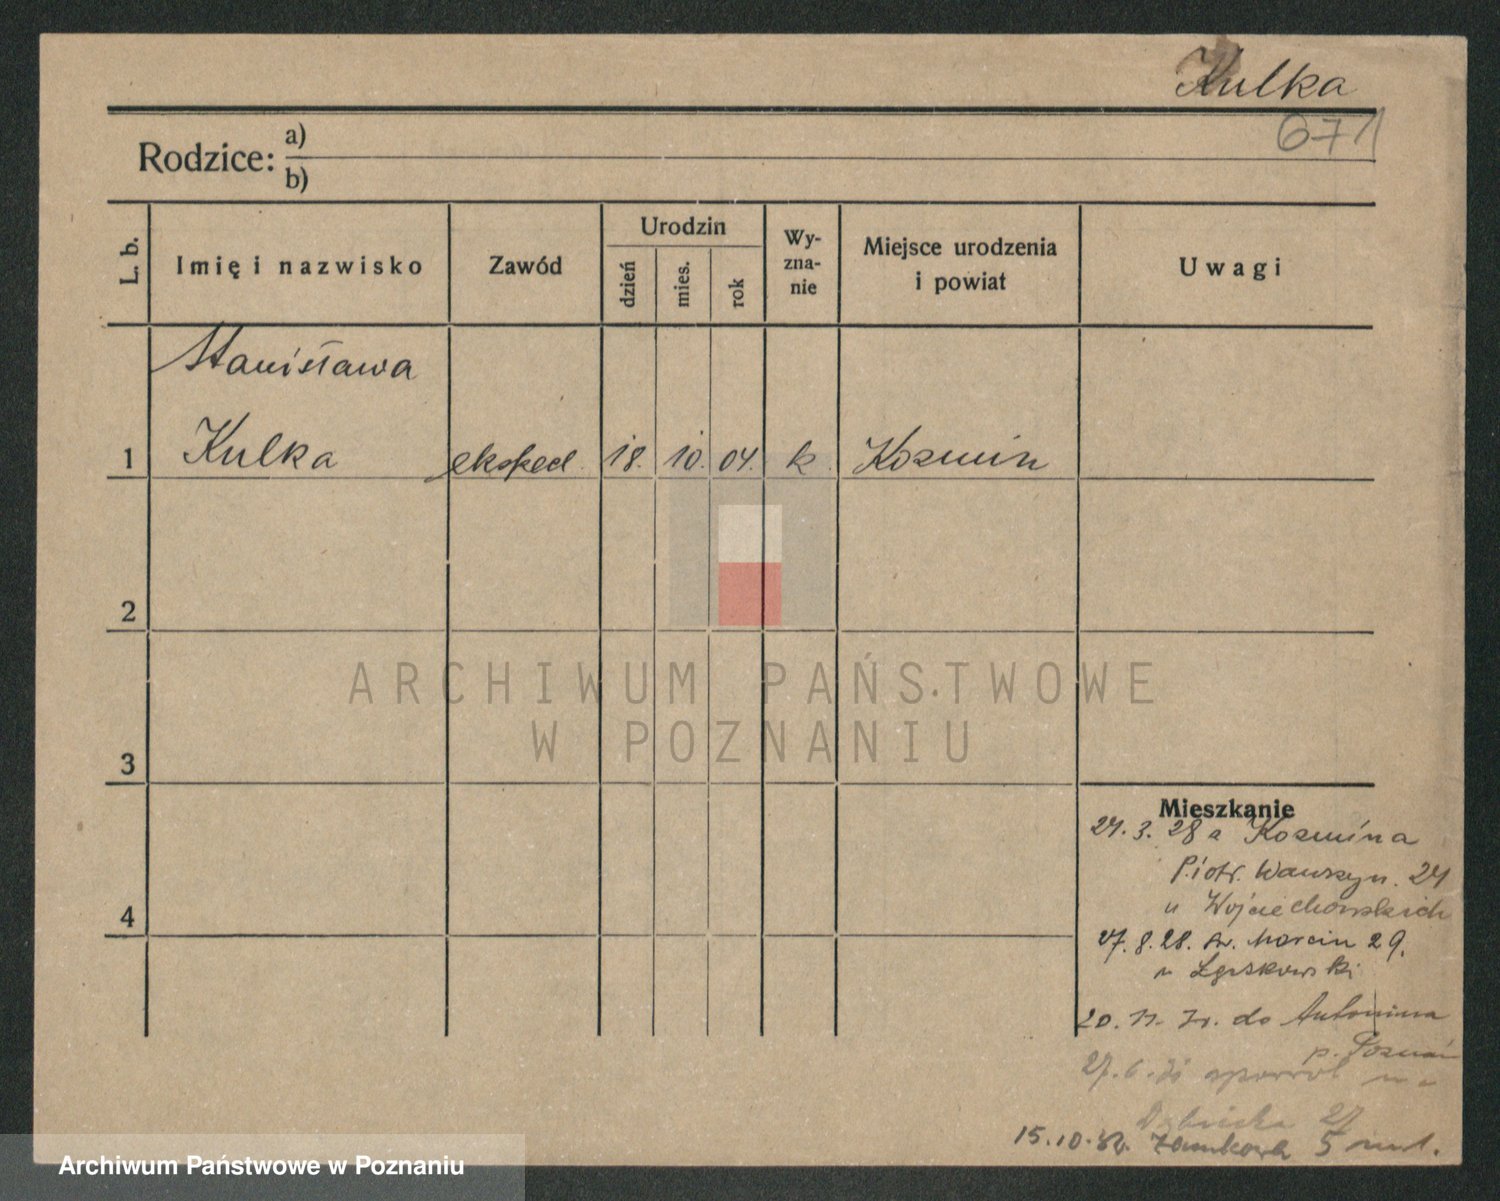 Kulka
671
Rodzice: a)
b)
L. b.
Imię i nazwisko
Zawód
Urodzin
dzień
mies.
rok
Wy-
zna-
nie
Miejsce urodzenia
i powiat
Uwagi
Stanisława
1 Kulka eksped. 18. 10. 04. k. Kozmin
2
ARCHIWUM PAŃSTWOWE
W POZNANIU
3
Mieszkanie
24. 3. 28 z Kozmina
Piotr. Wawrzyn. 24
u Wojciechowskich
27. 8. 28. św. Marcin 29.
u
4
20. 11. do Antonina
p. Poznań
27. 6.
Dąbrówka 27
15. 10. Zamkowa 5
Archiwum Państwowe w Poznaniu